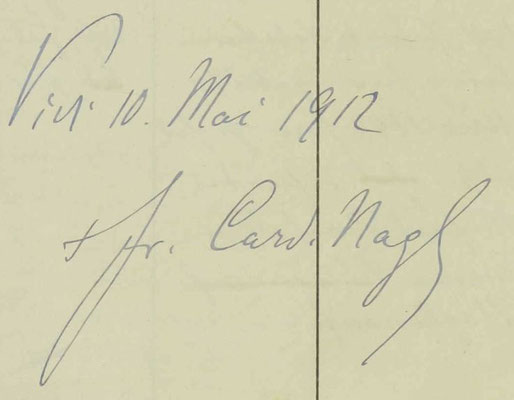 Vidi 10. Mai 1912
+ Fr. Card. Nagl